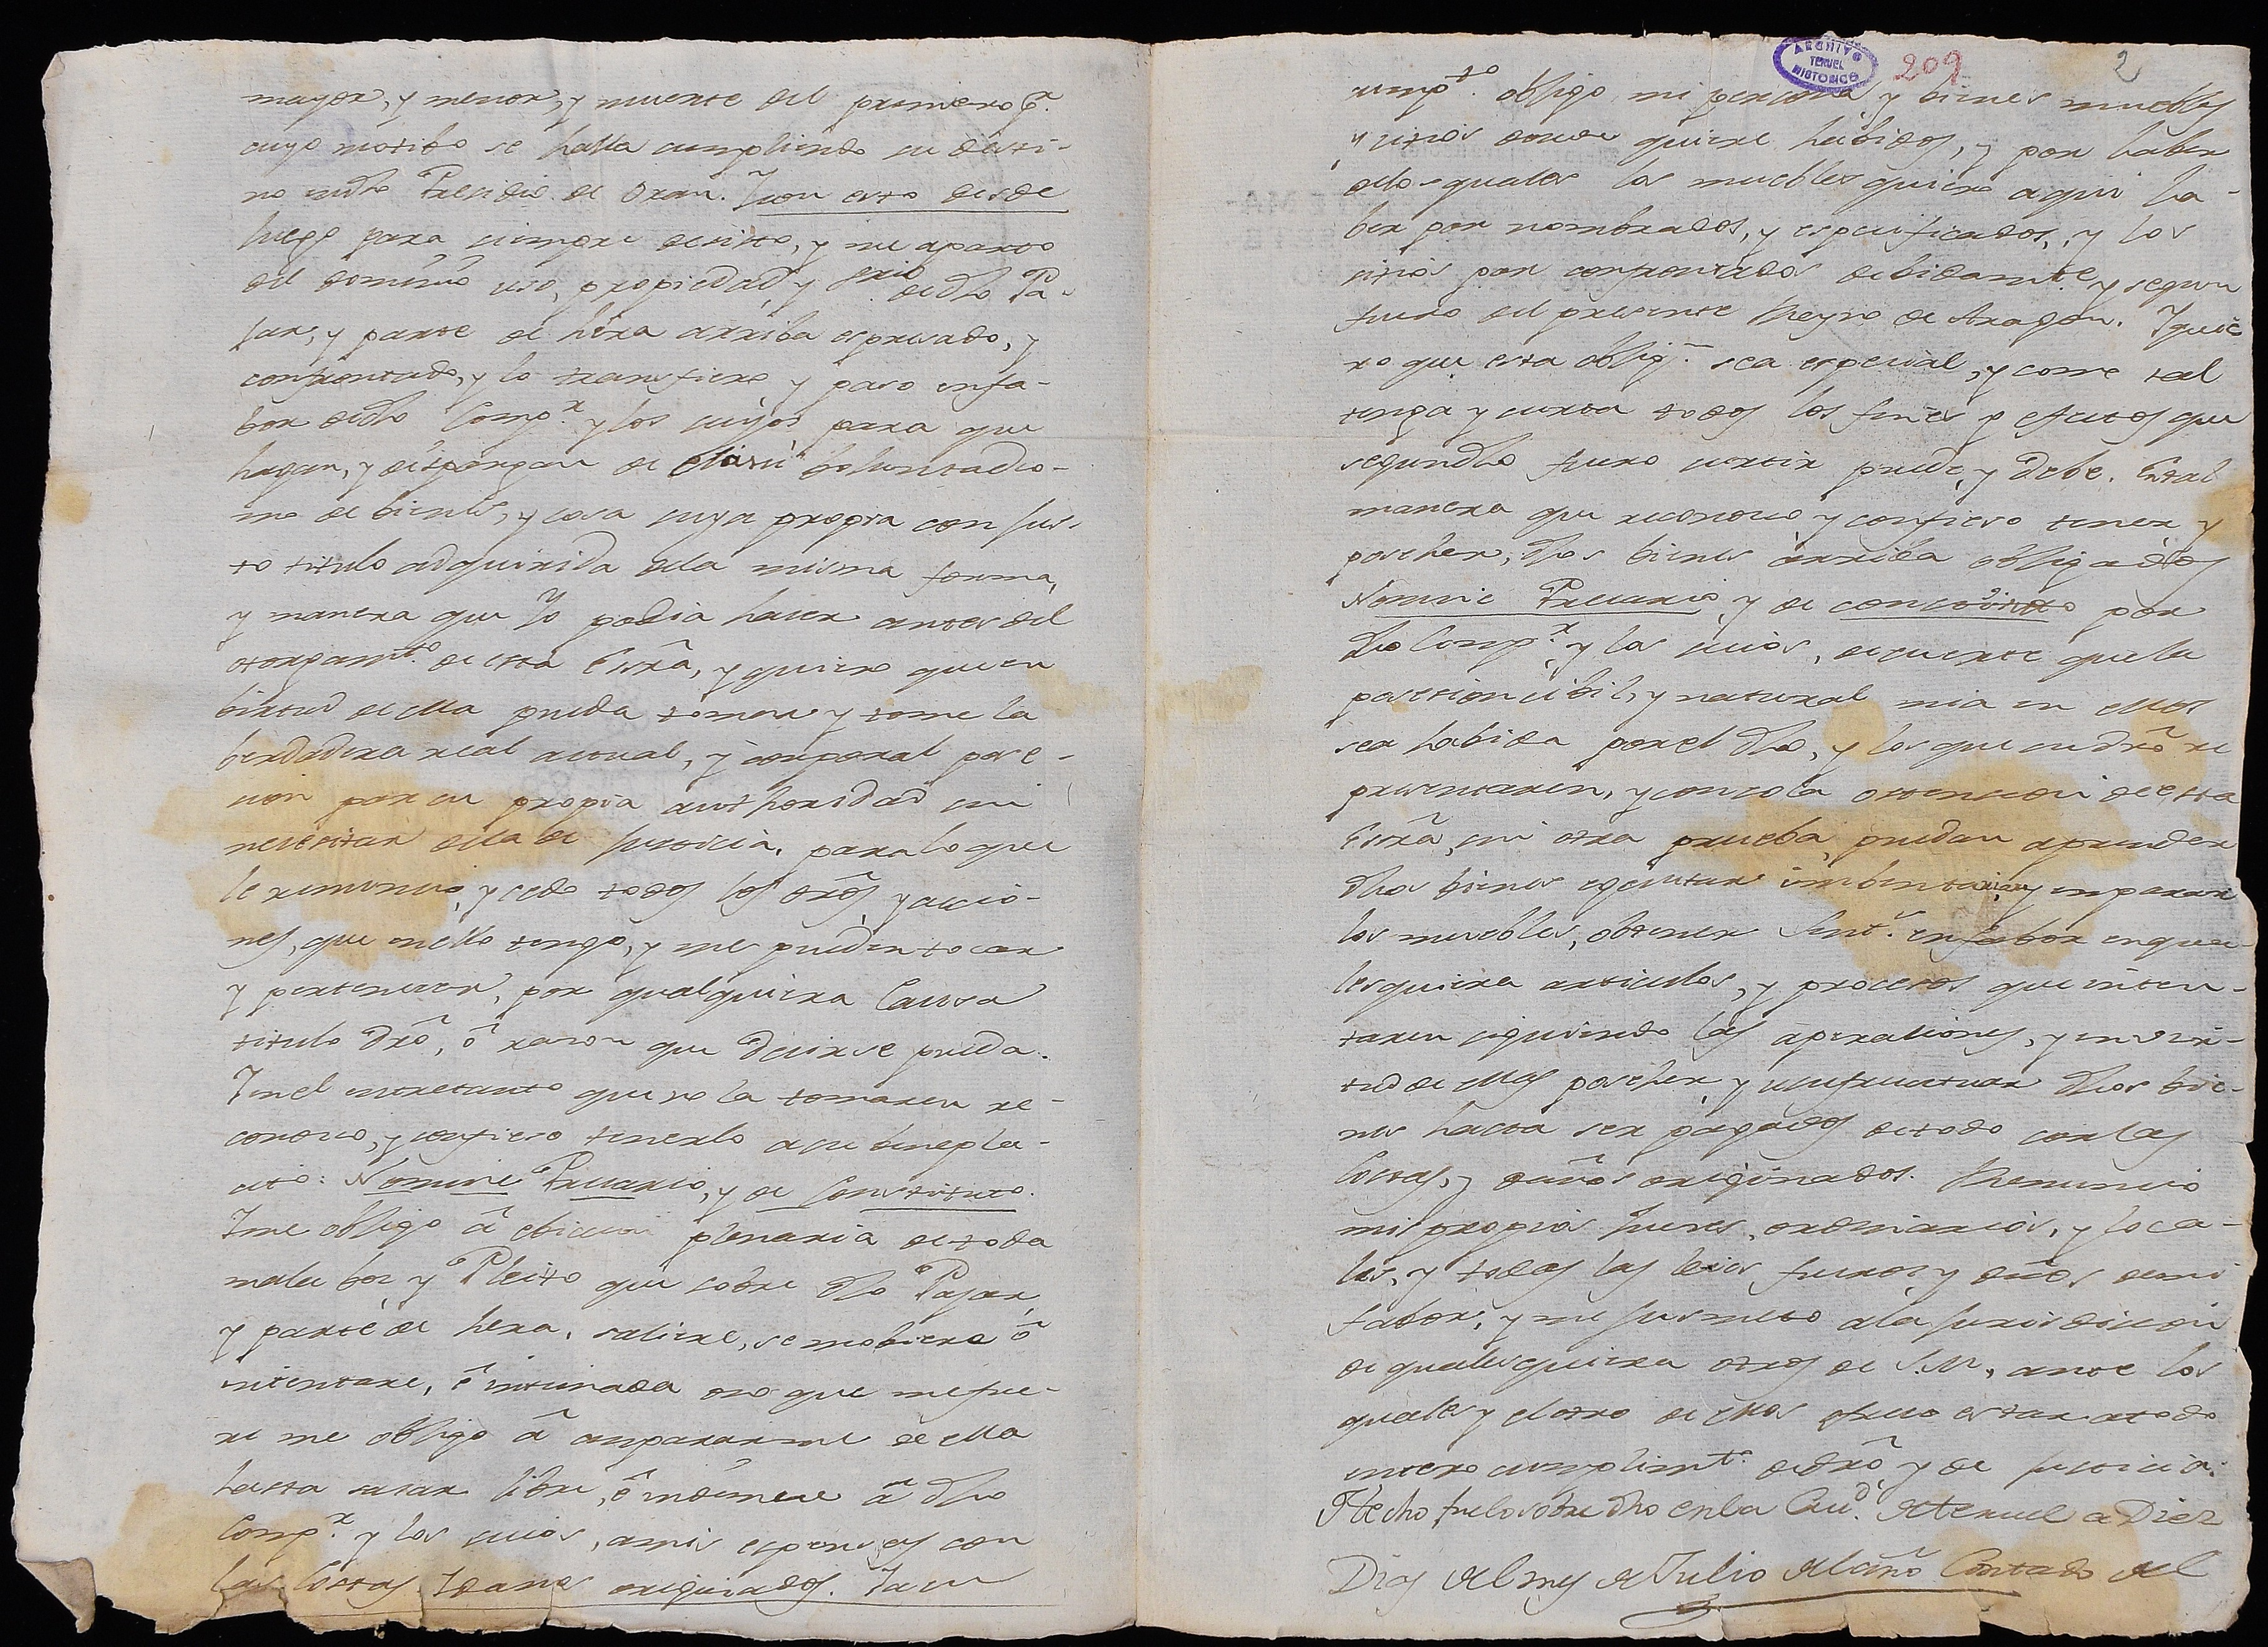 mayor, y menor, y muerte del primero pr.
cuyo motibo se halla cumpliendo su desti-
no en dho Presidio de Oran. Y con esto desde
luego para siempre desisto, y me aparto
del dominio uso, propiedad, y de dho Pa-
jar, y parte de hera arriba espresado, y
confrontado, y lo transfiero y paso enfa-
bor de dho Compr. y los suyos para que
hagan, y dispongan de ello a su boluntad co-
mo de bienes, y cosa suya propria con jus-
to titulo adquirida dela misma forma,
y manera que Yo podia hacer antes del
otorgamto. de esta Essra, y quiero que en
birtud de ella pueda tomar y tome la
berdadera real actual, y corporal pose-
cion por su propia authoridad sin
necesitar dela de Justicia. para lo que
le renuncio, y cedo todos los dros, y accio-
nes, que en ello tengo, y me pueden tocar
y pertenecer, por qualquiera Causa
titulo dro, ó razon que decirse pueda.
Y en el entretanto que no la tomaren re-
conozco, y confieso tenerlo a su benepla-
cito: Nomine Precario, y de Constituto.
Y me obligo â ebiccion plenaria de toda
mala boz y Pleito que sobre dho Pajar,
y parte de hera, saliere, se mobiere ô
intentare, ê intimada o no que me fue-
re me obligo â ampararme de ella
hasta sacar libre, ê indemne â dho
Compr. y los suios, a mis espensas con
las Costas, Y daños originados. Y a su
ARCHIVO
TERUEL
HISTORICO
209
2
cumpto. obligo mi persona y bienes muebles
y sitios donde quiere habidos, y por haber
delos quales los muebles quiero aqui ha-
ber por nombrados, y especificados, y los
sitios por confrontados debidamte. y segun
fuero del presente Reyno de Aragon. Y quie-
ro que esta oblign. sea especial, y como tal
tenga y surta todos los fines y efectos que
segun dho fuero surtir puede, y Debe. En tal
manera que reconozco y confieso tener y
posehen, dhos bienes arriba obligados
Nomine Precario, y de constituto por
dho Compr. y los suios, de suerte que la
posesion cibil, y natural mia en ellos
sea habida por el dho, y los que su dro re
presentaren, y con sola ostension de esta
Essra, sin otra prueba, puedan aprender
dhos bienes egecutar imbentariar y emparar
los muebles, obtener Sentª. en fabor en qua-
lesquiera articulos, y procesos que inten-
taren siguiendo las apelaciones, y en vir-
tud de ellas posehen, y usufructuar dhos bie-
nes hasta ser pagados de todo con las
Costas, y daños originados. Renuncio
mis propios Jueces, ordinarios, y loca-
les, y todas las leies fueros y dros de mi
fabor, y me jusmeto ala Jurisdiccion
de qualesquiera otros de S.M. ante los
quales y el otro de ellos ofrezco estar a todo
entero cumplimto. de dro y de justicia.
Hecho fue lo sobre dho en la Ciud. de Teruel a Diez
Dias del mes de Julio del año Contado del